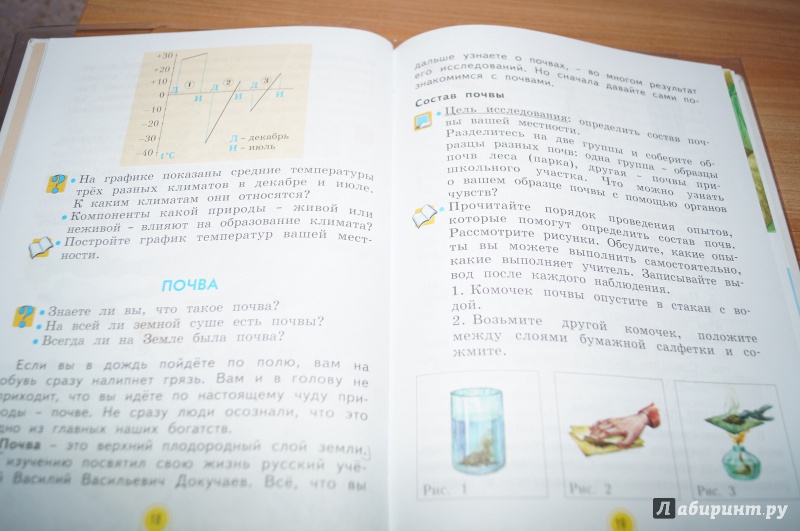 +30
+20
+10
0
-10
-20
-30
-40
t°C
Д 1 Д 2 Д 3
И И И
Д – декабрь
И – июль
• На графике показаны средние температуры
трёх разных климатов в декабре и июле.
К каким климатам они относятся?
• Компоненты какой природы - живой или
неживой - влияют на образование климата?
• Постройте график температур вашей мест-
ности.
ПОЧВА
• Знаете ли вы, что такое почва?
• На всей ли земной суше есть почвы?
• Всегда ли на Земле была почва?
Если вы в дождь пойдёте по полю, вам на
обувь сразу налипнет грязь. Вам и в голову не
приходит, что вы идёте по настоящему чуду при-
роды - почве. Не сразу люди осознали, что это
одно из главных наших богатств.
Почва - это верхний плодородный слой земли,
изучению посвятил свою жизнь русский учё-
й Василий Васильевич Докучаев. Всё, что вы
18
дальше узнаете о почвах, - во многом результат
его исследований. Но сначала давайте сами по-
знакомимся с почвами.
Состав почвы
• Цель исследования: определить состав поч-
вы вашей местности.
Разделитесь на две группы и соберите об-
разцы разных почв: одна группа - образцы
почв леса (парка), другая - почвы при-
школьного участка. Что можно узнать
о вашем образце почвы с помощью органов
чувств?
• Прочитайте порядок проведения опытов,
которые помогут определить состав почв.
Рассмотрите рисунки. Обсудите, какие опы-
ты вы можете выполнить самостоятельно,
какие выполняет учитель. Записывайте вы-
вод после каждого наблюдения.
1. Комочек почвы опустите в стакан с во-
дой.
2. Возьмите другой комочек, положите
между слоями бумажной салфетки и со-
жмите.
Рис. 1
Рис. 2
Рис. 3
19
Лабиринт.ру